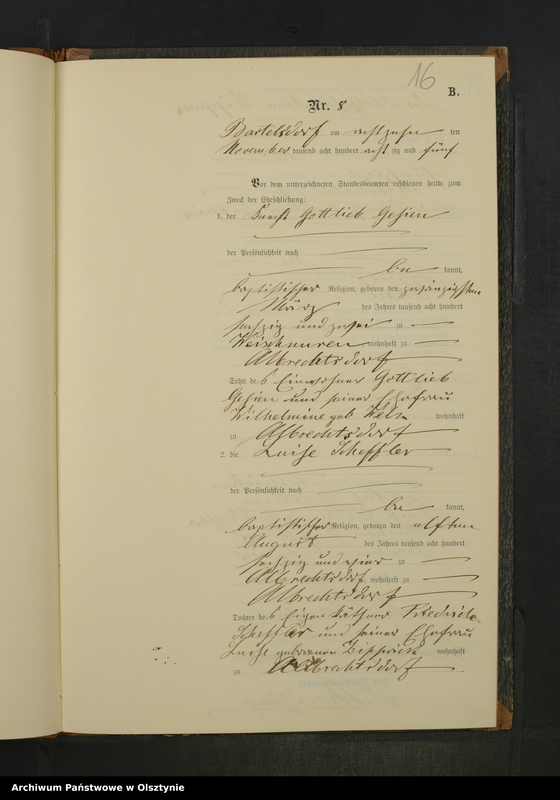 16
B.
Nr. 8
Bartelsdorf am achtzehn ten
November tausend acht hundert acht zig und fünf
Vor dem unterzeichneten Standesbeamten erschienen heute zum
Zweck der Eheschließung:
1. der Knecht Gottlieb Gehien
der Persönlichkeit nach
be kannt,
baptistischer Religion, geboren den zwanzigsten
März des Jahres tausend acht hundert
sechzig und zwei zu
wohnhaft zu
Albrechtsdorf
Sohn des Einwohner Gottlieb
Gehien und seiner Ehefrau
Wilhelmine geb. wohnhaft
zu Albrechtsdorf
2. die Luise Scheffler
der Persönlichkeit nach
be kannt,
baptistischer Religion, geboren den elften
August des Jahres tausend acht hundert
sechzig und vier zu
Albrechtsdorf, wohnhaft zu
Albrechtsdorf
Tochter des Eigenkäthner Friedrich
Scheffler und seiner Ehefrau
Luise geborenen wohnhaft
zu Albrechtsdorf
Archiwum Państwowe w Olsztynie